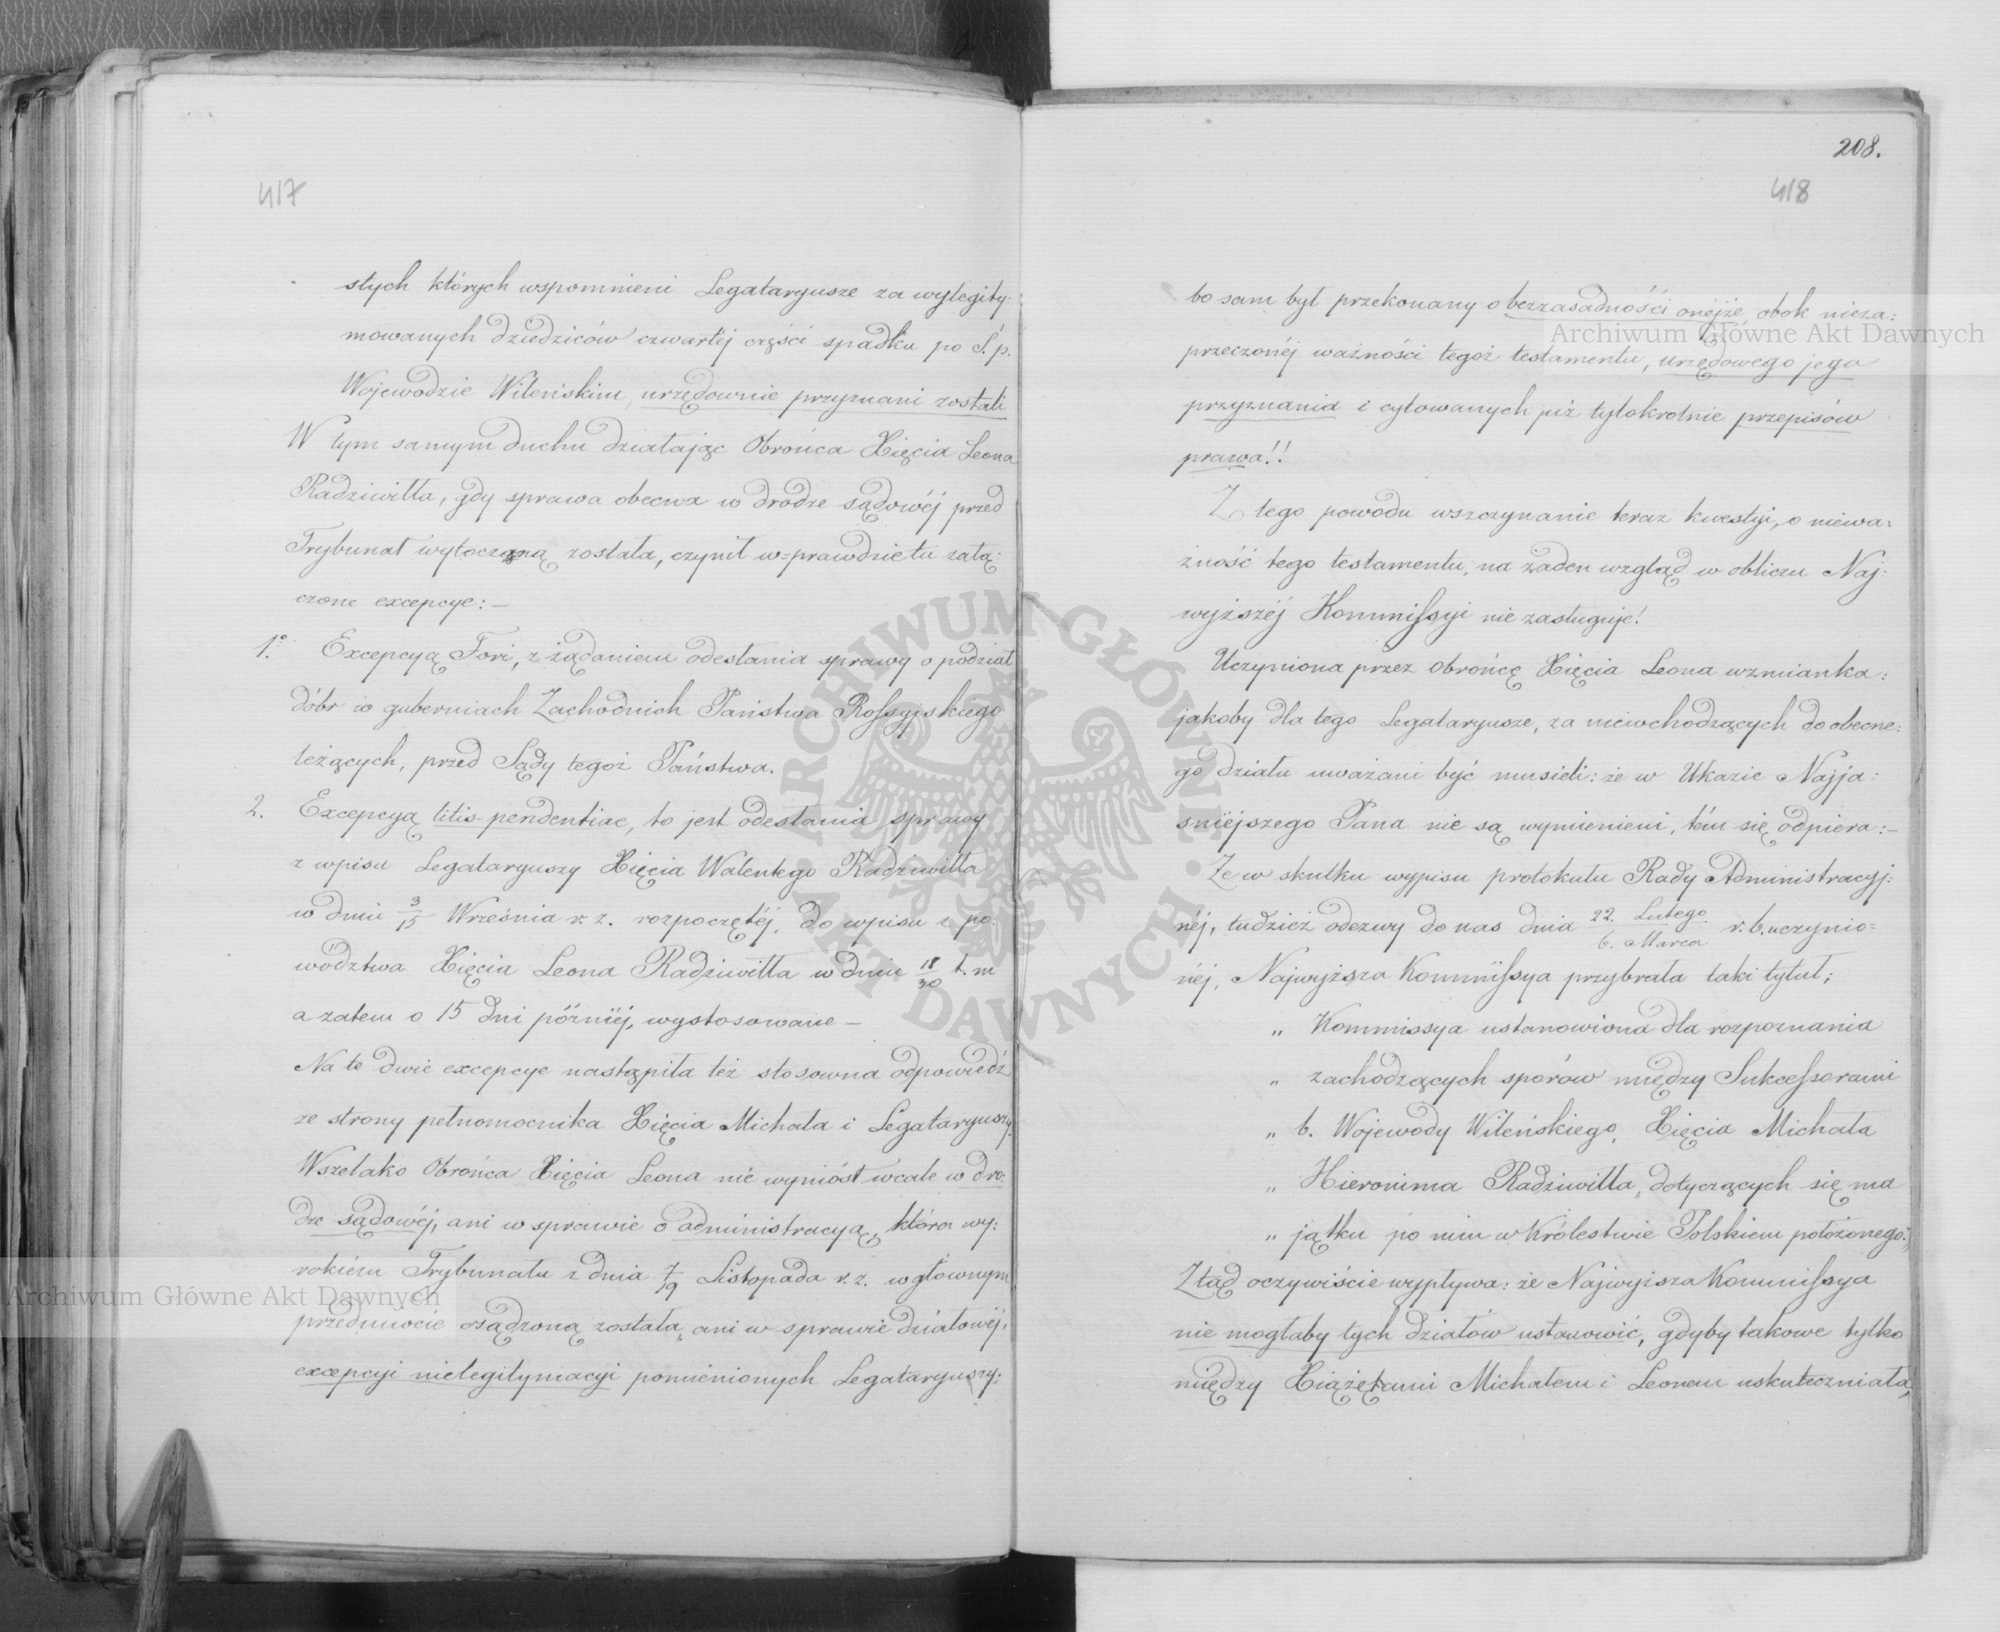 417
stych których wspomnieni Legataryusze za wylegity:
mowanych dziedziców czwartéj części spadku po Ś. p.
Wojewodzie Wileńskim, urzędownie przyznani zostali
W tym samym duchu działając Obrońca Xięcia Leona
Radziwiłła, gdy sprawa obecna w drodze sądowéj przed
Trybunał wytoczoną została, czynił w=prawdzie tu załą:
czone excepcye: —
1.° Excepcyą Fori, z żądaniem odesłania sprawy o podział
dóbr w guberniach Zachodnich Państwa Rossyjskiego
leżących, przed Sądy tegoż Państwa.
2. Excepcyą litis-pendentiae, to jest odesłania sprawy
z wpisu Legataryuszy Xięcia Walentego Radziwiłła
w dniu 3/15 Września r. z. rozpoczętéj, do wpisu z po:
wództwa Xięcia Leona Radziwiłła w dniu 18/30 t. m
a zatem o 15 dni późniéj, wystosowane —
Na te dwie excepcye nastąpiła też stosowna odpowiedź
ze strony pełnomocnika Xięcia Michała i Legataryuszy.
Wszelako Obrońca Xięcia Leona nie wyniósł wcale w dro:
dze sądowéj, ani w sprawie o administracyą, która wy:
rokiem Trybunału z dnia 7/19 Listopada r. z. w głównym
przedmiocie osądzoną została, ani w sprawie działowéj,
excepcyi nielegitymacyi pomienionych Legataryuszy:
208.
418
bo sam był przekonany o bezzasadności onéjże obok nieza:
przeczonéj ważności tegoż testamentu, urzędowego jego
przyznania i cytowanych już tylokrotnie przepisów
prawa!!
Z tego powodu wszczynanie teraz kwestyi, o niewa:
żność tego testamentu, na żaden wzgląd w obliczu Naj:
wyższéj Kommissyi nie zasługuje!
Uczyniona przez Obrońcę Xięcia Leona wzmianka:
jakoby dla tego Legataryusze, za niewchodzących do obecne:
go działu uważani być musieli: że w Ukazie Najja:
śniéjszego Pana nie są wymienieni, tém się odpiera: —
Że w skutku wypisu protokułu Rady Administracyj:
néj, tudzież odezwy do nas dnia 22. Lutego/6. Marca r. b. uczynio=
néj, Najwyższa Kommissya przybrała taki tytuł;
„ Kommissya ustanowiona dla rozpoznania
„ zachodzących sporów między Sukcessorami
„ b. Wojewody Wileńskiego, Xięcia Michała
„ Hieronima Radziwiłła, dotyczących się ma
„ jątku po nim w Królestwie Polskiem położonego:„
Ztąd oczywiście wypływa: że Najwyższa Kommissya
nie mogłaby tych działów ustanowić, gdyby takowe tylko
między Xiążętami Michałem i Leonem uskuteczniała,
Archiwum Główne Akt Dawnych
Archiwum Główne Akt Dawnych
ARCHIWUM GŁÓWNE AKT DAWNYCH